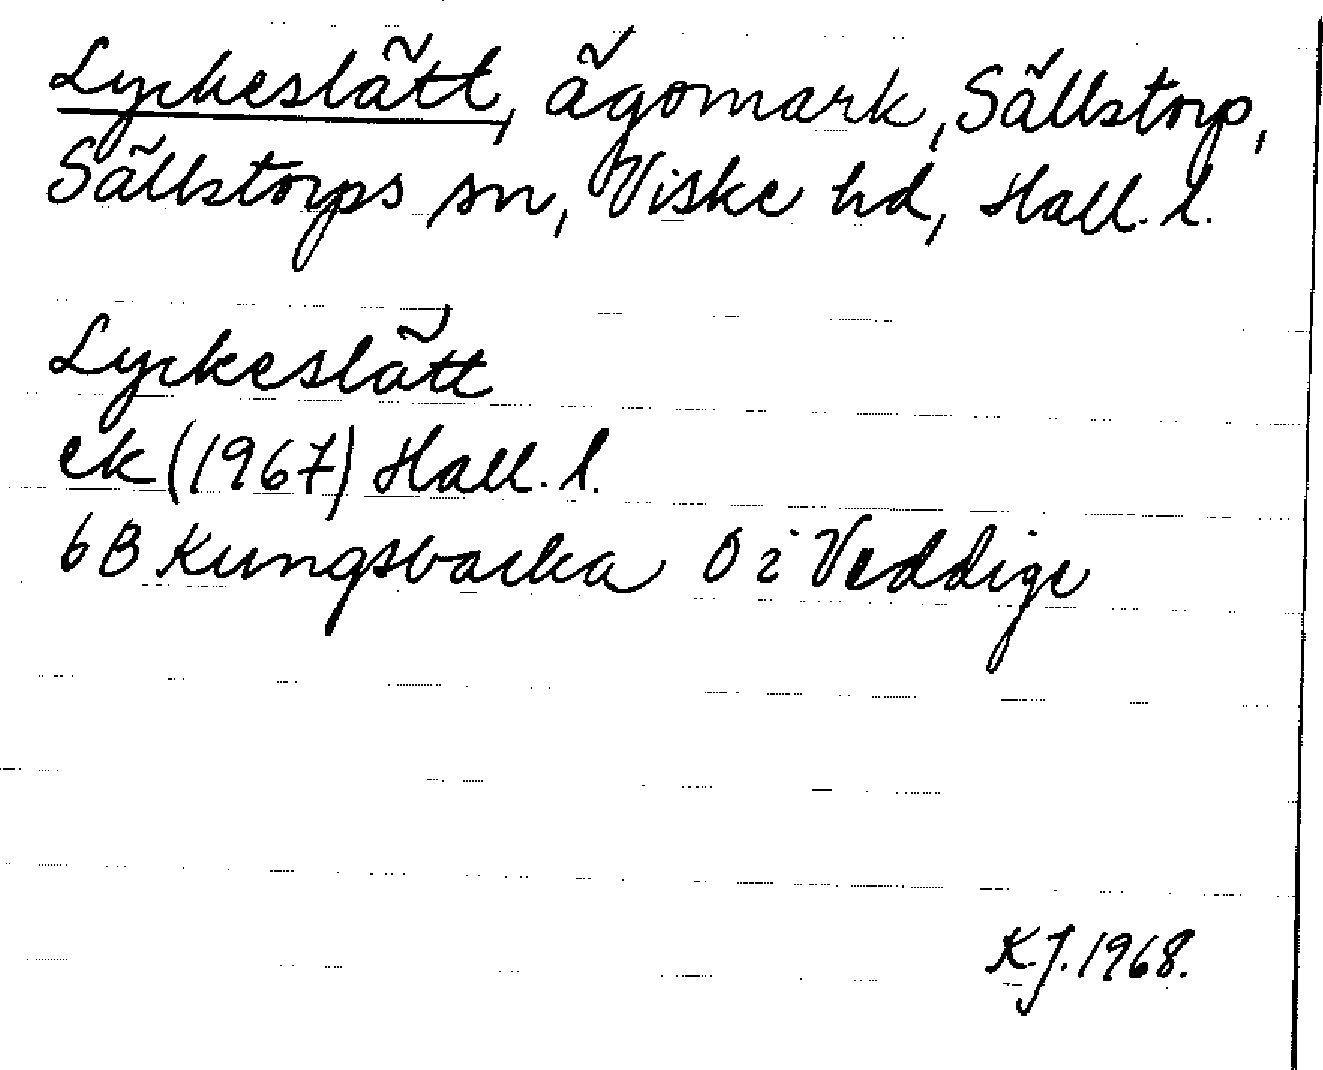 Lyckeslätt, ägomark, Sällstorp,
Sällstorps sn, Viske hd, Hall. l.
Lyckeslätt
ek (1967) Hall. l.
6B Kungsbacka 0 i Veddige
K.J. 1968.